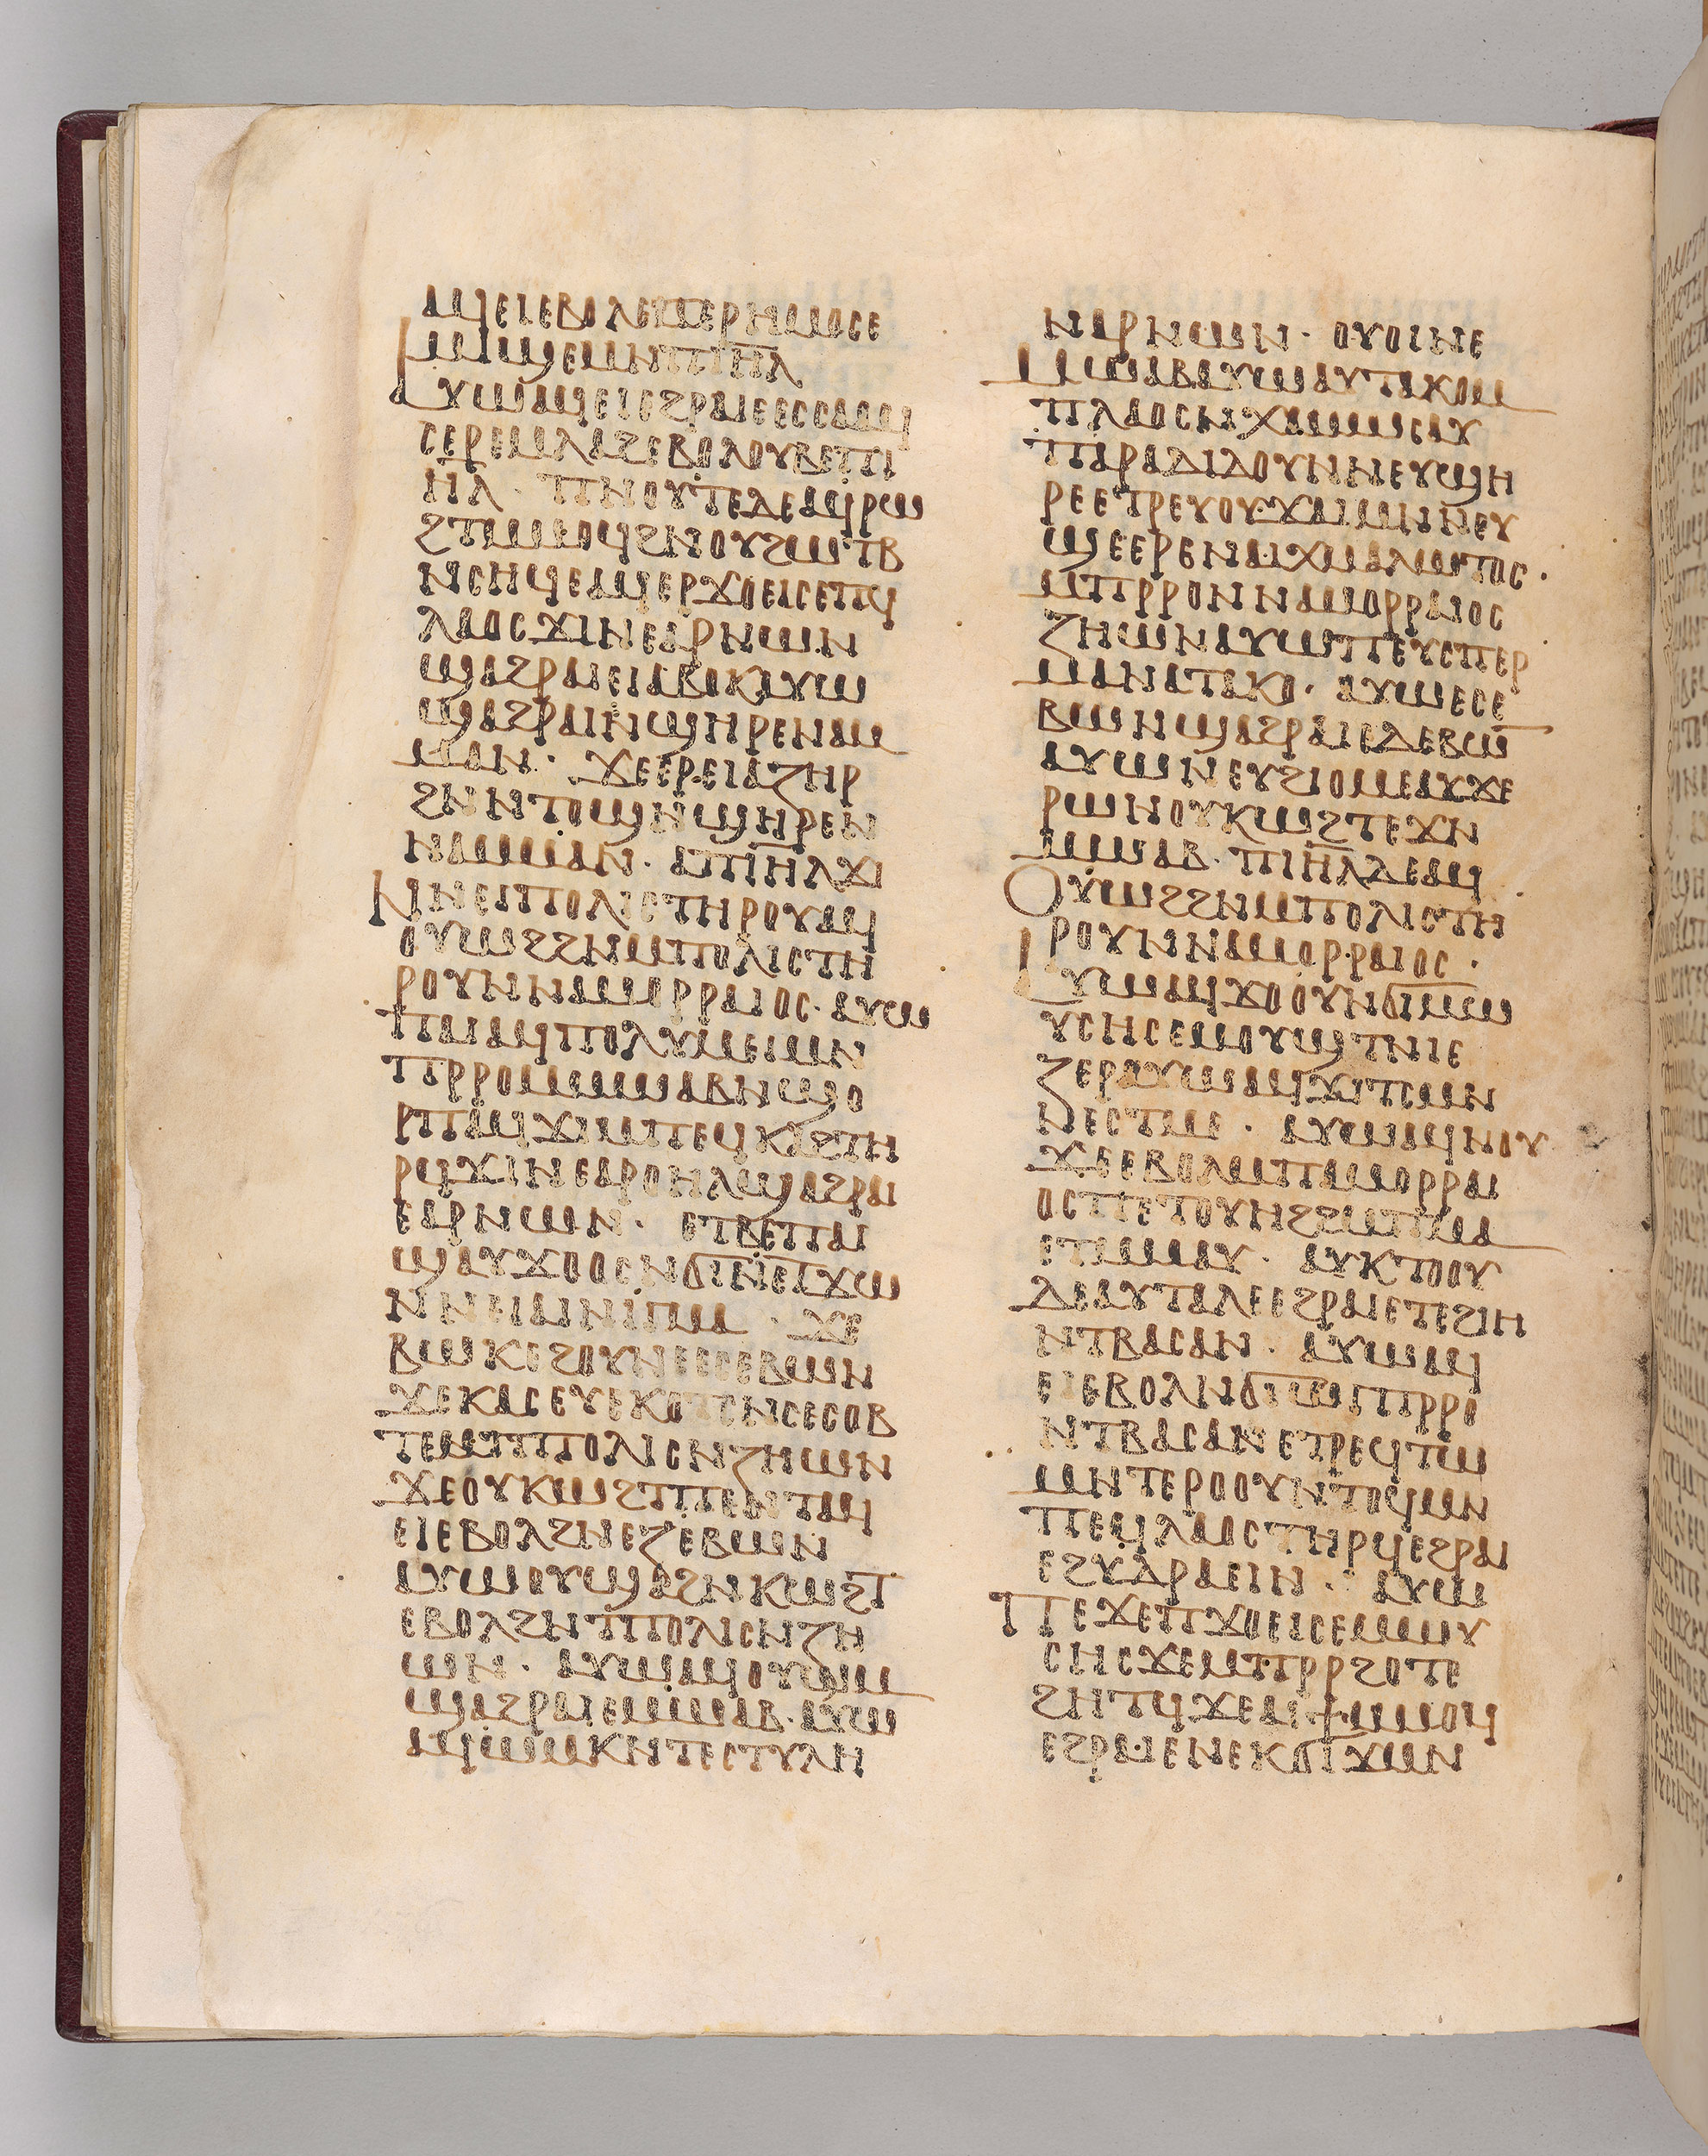 ⲁϥⲉⲓⲉⲃⲟⲗⲉⲧⲉⲣⲏⲙⲟⲥⲉ
ⲙⲓϣⲉⲙⲛⲡⲓⲏⲗ
ⲁⲩⲱⲁϥⲉⲓⲉϩⲣⲁⲓⲉⲉⲥⲥⲁⲁϥ
ⲥⲉⲣⲉⲙⲗⲁϩⲉⲃⲟⲗⲟⲩⲃⲉⲡⲓ
ⲏⲗ · ⲡⲛⲟⲩⲧⲉⲇⲉⲁϥⲣⲱ
ϩⲧⲙⲙⲟϥϩⲛⲟⲩϩⲱⲧⲃ
ⲛⲥⲏϥⲉⲁϥⲉⲣϫⲟⲉⲓⲥⲉⲡϥ
ⲗⲁⲟⲥϫⲓⲛⲉⲁⲣⲛⲱⲛ
ϣⲁϩⲣⲁⲓⲉⲓⲁⲃⲟⲕⲁⲩⲱ
ϣⲁϩⲣⲁⲓⲛϣⲏⲣⲉⲛⲁⲙ
ⲙⲁⲛ · ϫⲉⲉⲣⲉⲓⲁⲍⲏⲣ
ϩⲛⲛⲧⲟϣⲛϣⲏⲣⲉⲛ
ⲛⲁⲙⲙⲁⲛ · ⲁⲡⲓⲏⲗϫⲓ
ⲛⲛⲉⲓⲡⲟⲗⲓⲥⲧⲏⲣⲟⲩⲁϥ
ⲟⲩⲱϩϩⲛⲙⲡⲟⲗⲓⲥⲧⲏ
ⲣⲟⲩⲛⲛⲁⲙⲟⲣⲣⲁⲓⲟⲥ · ⲁⲩⲱ
ⲡⲁⲓⲁϥⲡⲟⲗⲩⲙⲉⲓⲙⲛ
ⲡⲣⲣⲟⲙⲙⲱⲁⲃⲛϣⲟ
ⲣⲡⲁϥϫⲓⲙⲡⲉϥⲕⲁϩⲧⲏ
ⲣϥϫⲓⲛⲉⲁⲣⲟⲏⲗϣⲁϩⲣⲁⲓ
ⲉⲁⲣⲛⲱⲛ · ⲉⲧⲃⲉⲡⲁⲓ
ϣⲁⲩϫⲟⲟⲥⲛϭⲓⲛⲉⲧϫⲱ
ⲛⲛⲉⲓⲁⲓⲛⲓⲅⲙⲁ · ϫⲉ
ⲃⲱⲕⲉϩⲟⲩⲛⲉⲉⲥⲉⲃⲱⲛ
ϫⲉⲕⲁⲥⲉⲩⲉⲕⲟⲧⲥⲛⲥⲉⲥⲟⲃ
ⲧⲉⲛⲧⲡⲟⲗⲓⲥⲛⲍⲏⲱⲛ
ϫⲉⲟⲩⲕⲱϩⲧⲡⲉⲛⲧⲁϥ
ⲉⲓⲉⲃⲟⲗϩⲛⲉⲍⲉⲃⲱⲛ
ⲁⲩⲱⲟⲩϣⲁϩⲛⲕⲱϩⲧ
ⲉⲃⲟⲗϩⲛⲧⲡⲟⲗⲓⲥⲛⲍⲏ
ⲱⲛ · ⲁⲩⲱⲁϥⲟⲩⲱⲙ
ϣⲁϩⲣⲁⲓⲉⲙⲙⲱⲁⲃ · ⲁⲩⲱ
ⲁϥⲱⲙⲕⲛⲧⲉⲥⲧⲩⲗⲏ
ⲛⲁⲣⲛⲱⲛ · ⲟⲩⲟⲓⲛⲉ
ⲙⲱⲁⲃⲁⲩⲱⲁⲩⲧⲁⲕⲟⲙ
ⲡⲗⲁⲟⲥⲛⲭⲁⲙⲱⲥⲁⲩ
ⲡⲁⲣⲁⲇⲓⲇⲟⲩⲛⲛⲉⲩϣⲏ
ⲣⲉⲉⲧⲣⲉⲩⲟⲩϫⲁⲓⲙⲛⲛⲉⲩ
ϣⲉⲉⲣⲉⲛⲁⲓⲭⲙⲁⲗⲱⲧⲟⲥ ·
ⲙⲡⲣⲣⲟⲛⲛⲁⲙⲟⲣⲣⲁⲓⲟⲥ
ⲍⲏⲱⲛⲁⲩⲱⲡⲉⲩⲥⲡⲉⲣ
ⲙⲁⲛⲁⲧⲁⲕⲟ · ⲁⲩⲱⲉⲥⲉ
ⲃⲱⲛϣⲁϩⲣⲁⲓⲉⲇⲉⲃⲱ
ⲁⲩⲱⲛⲉⲩϩⲓⲟⲙⲉⲁⲩϫⲉ
ⲣⲱⲛⲟⲩⲕⲱϩⲧⲉϫⲛ
ⲙⲱⲁⲃ · ⲡⲓⲏⲗⲇⲉⲁϥ
ⲟⲩⲱϩϩⲛⲙⲡⲟⲗⲓⲥⲧⲏ
ⲣⲟⲩⲛⲛⲁⲙⲟⲣⲣⲁⲓⲟⲥ ·
ⲁⲩⲱⲁϥϫⲟⲟⲩⲛϭⲓⲙⲱ
ⲩⲥⲏⲥⲉⲙⲟⲩϣⲧⲛⲓⲉ
ⲍⲉⲣⲁⲩⲱⲁϥϫⲓⲧⲥⲙⲛ
ⲛⲉⲥⲧⲙⲉ · ⲁⲩⲱⲁϥⲛⲟⲩ
ϫⲉⲉⲃⲟⲗⲙⲡⲁⲙⲟⲣⲣⲁⲓ
ⲟⲥⲡⲉⲧⲟⲩⲏϩϩⲙⲡⲙⲁ
ⲉⲧⲙⲙⲁⲩ · ⲁⲩⲕⲧⲟⲟⲩ
ⲇⲉⲁⲩⲧⲁⲗⲉⲉϩⲣⲁⲓⲉⲧⲉϩⲓⲏ
ⲛⲧⲃⲁⲥⲁⲛ · ⲁⲩⲱⲁϥ
ⲉⲓⲉⲃⲟⲗⲛϭⲓⲱⲅⲡⲣⲣⲟ
ⲛⲧⲃⲁⲥⲁⲛⲉⲧⲣⲉϥⲧⲱ
ⲙⲛⲧⲉⲣⲟⲟⲩⲛⲧⲟϥⲙⲛ
ⲡⲉϥⲗⲁⲟⲥⲧⲏⲣϥⲉϩⲣⲁⲓ
ⲉϩⲩⲇⲣⲁⲉⲓⲛ · ⲁⲩⲱ
ⲡⲉϫⲉⲡϫⲟⲉⲓⲥⲉⲙⲱⲩ
ⲥⲏⲥϫⲉⲙⲡⲣⲣϩⲟⲧⲉ
ϩⲏⲧϥϫⲉⲁⲓϯⲙⲙⲟϥ
ⲉϩⲣⲁⲓⲉⲛⲉⲕϭⲓϫⲱⲛ